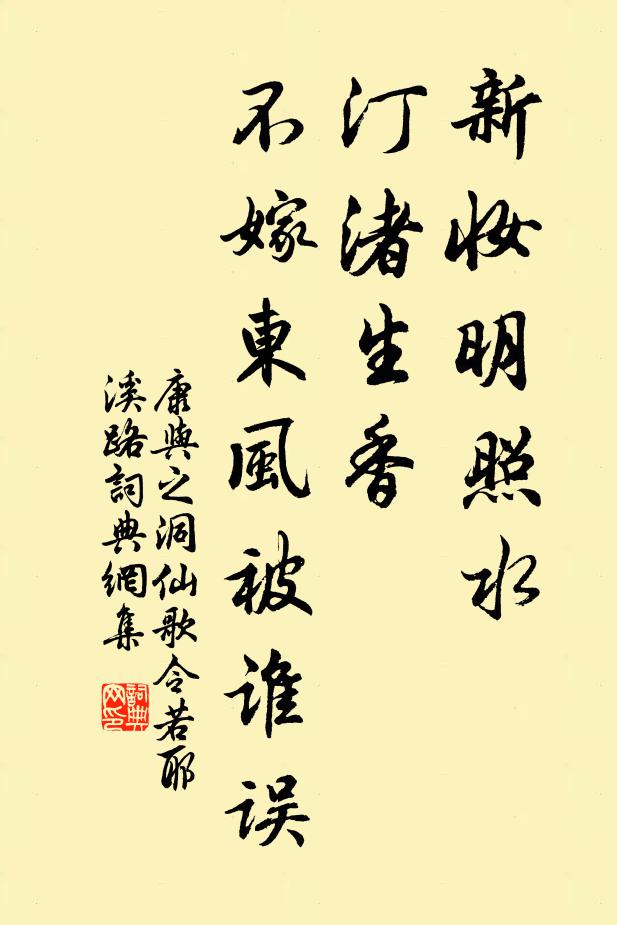 新妆明照水
汀渚生香
不嫁東風被谁误
康與之洞仙歌令若耶
溪路詞典網集
詞典
网印